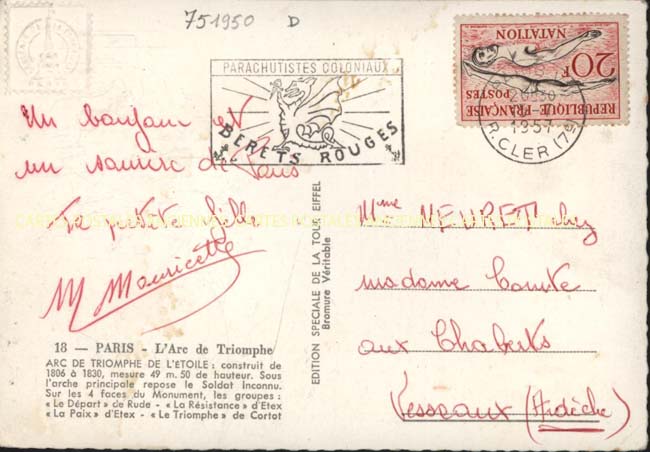 751950 D
PARACHUTISTES COLONIAUX
BERETS ROUGES
20F
NATATION
REPUBLIQUE-FRANÇAISE
POSTES
20H30
1954
R.CLER (7e)
Un bonjour et
un sourire de Paris
Ta petite fille
M Mauricette
18 — PARIS - L'Arc de Triomphe
ARC DE TRIOMPHE DE L'ETOILE : construit de
1806 à 1830, mesure 49 m. 50 de hauteur. Sous
l'arche principale repose le Soldat Inconnu.
Sur les 4 faces du Monument, les groupes :
« Le Départ » de Rude - « La Résistance » d'Etex
« La Paix » d'Etex - « Le Triomphe » de Cortot
EDITION SPECIALE DE LA TOUR EIFFEL
Bromure Véritable
Mme NEURETT chez
madame Comte
aux Chaberts
Vesseaux (Ardèche)